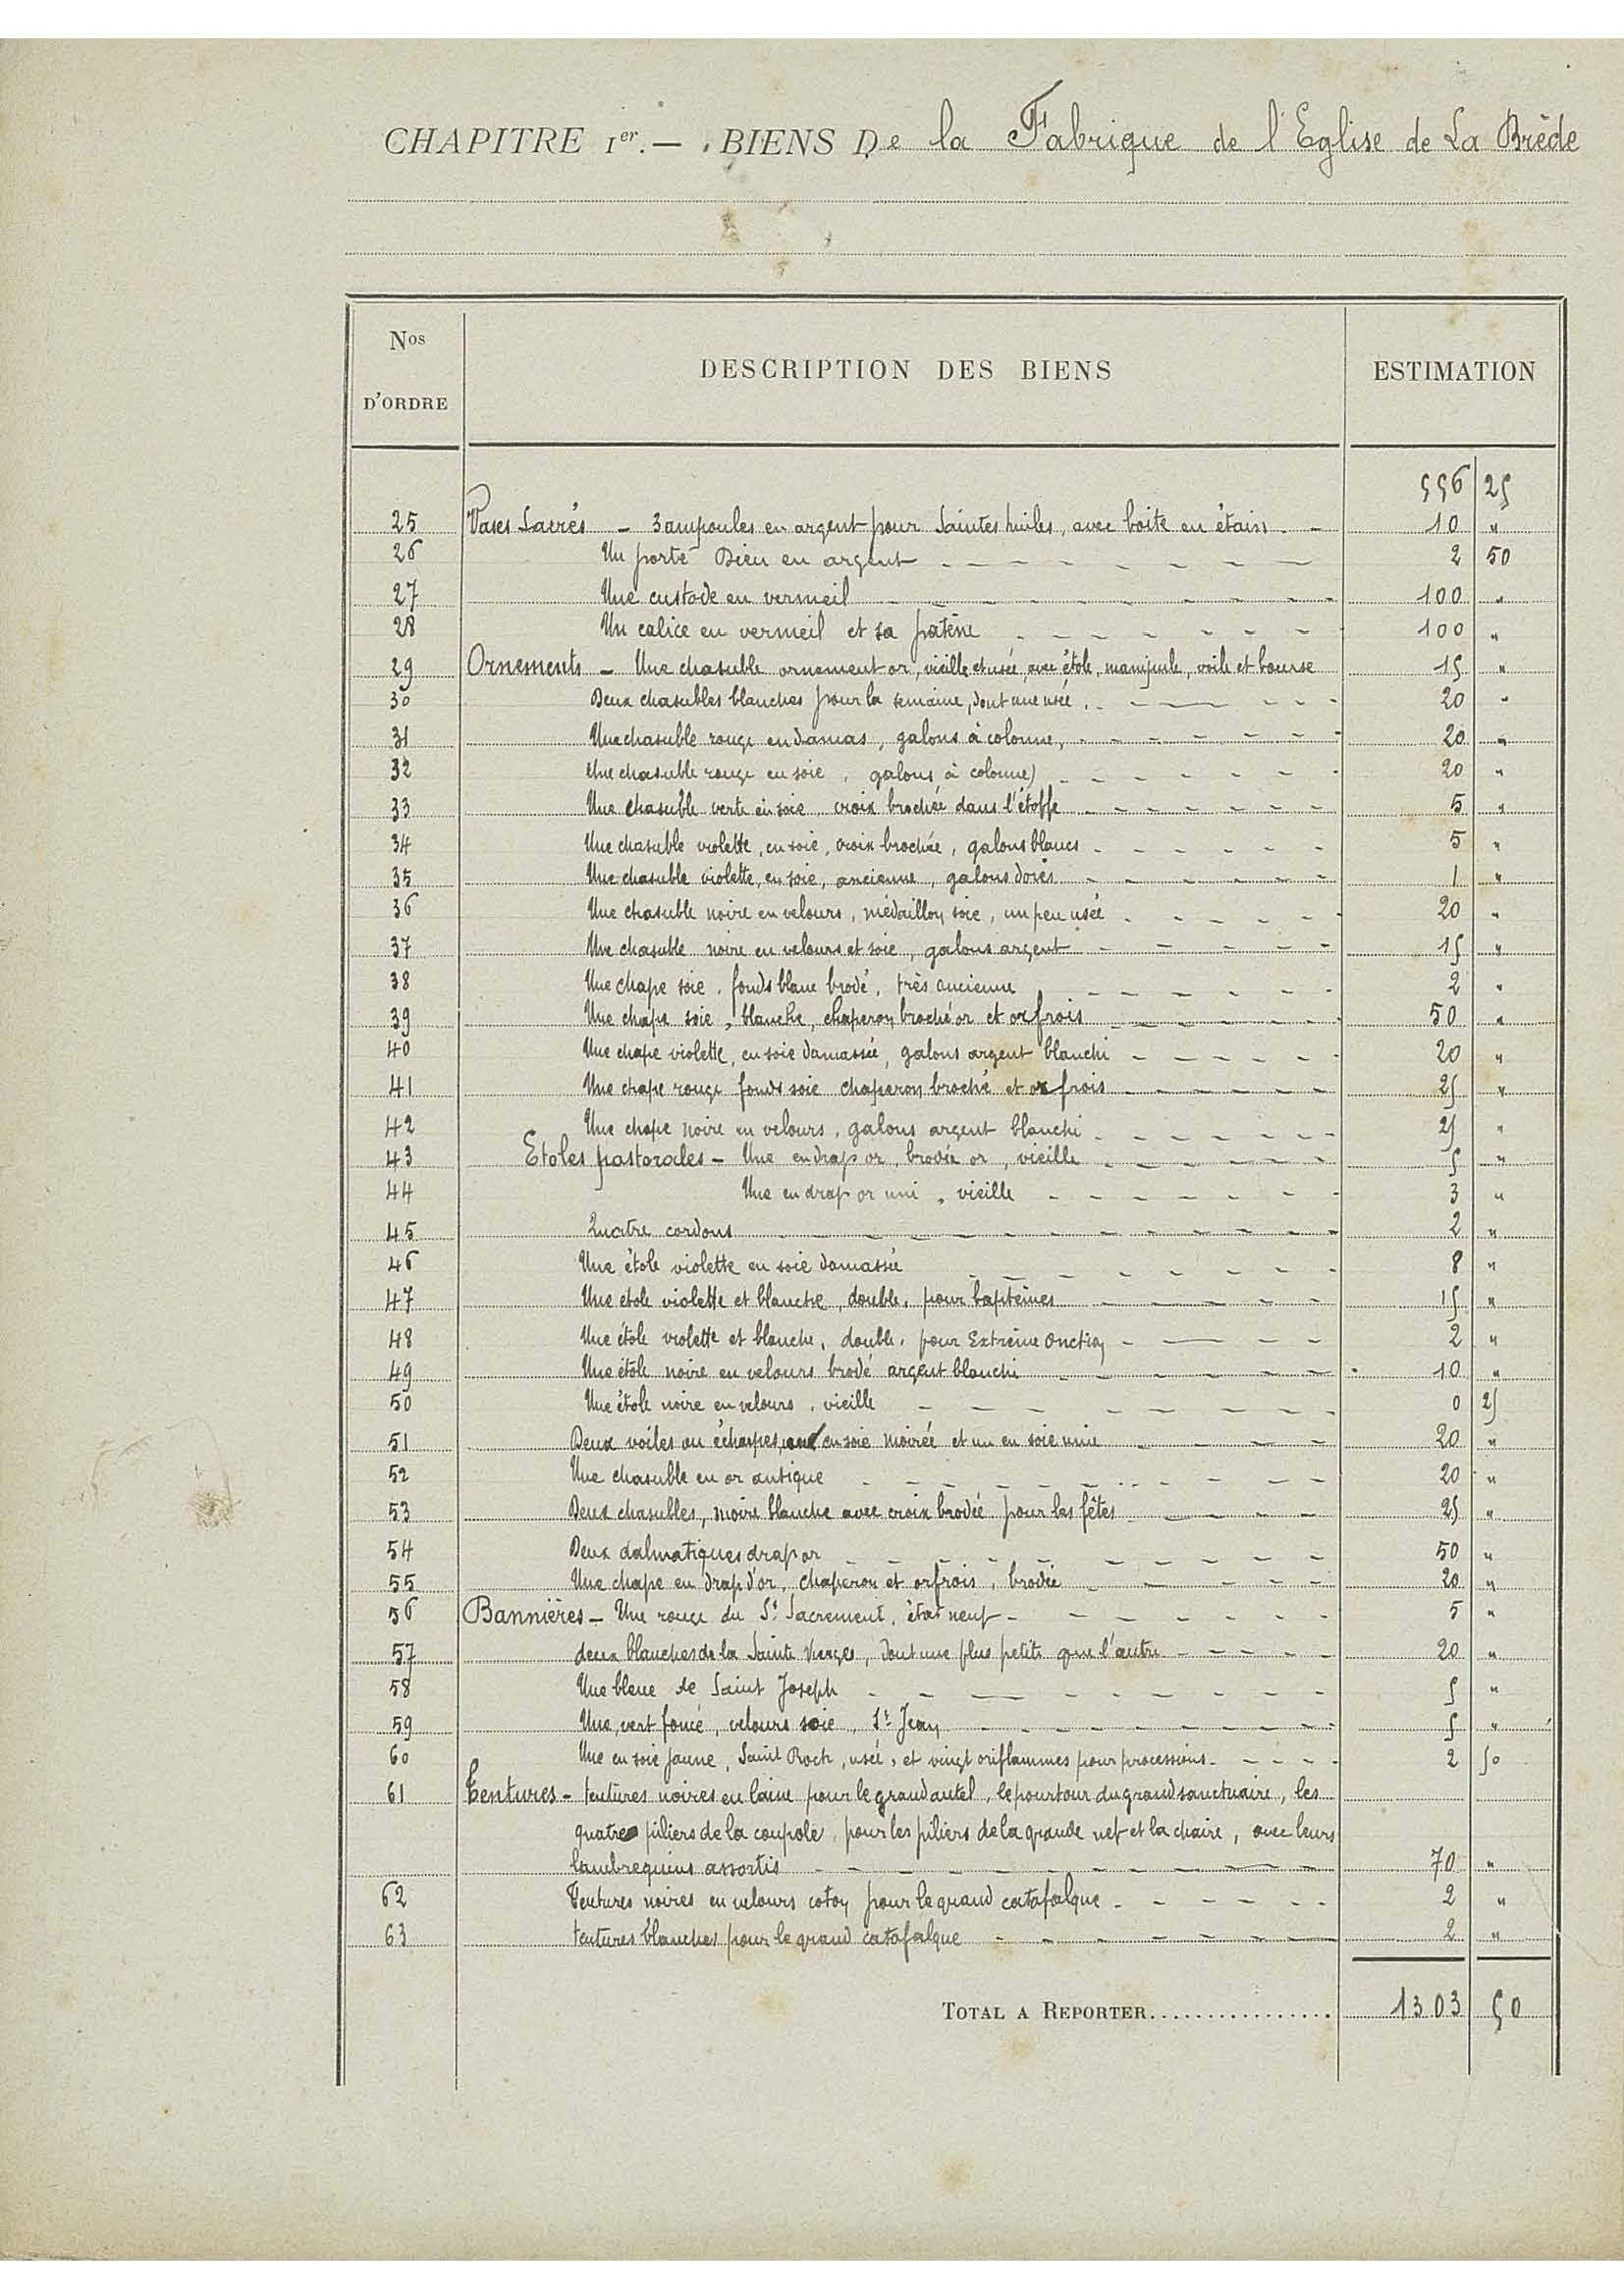 CHAPITRE 1er. — BIENS De la Fabrique de l'Eglise de La Brède
Nos D'ORDRE DESCRIPTION DES BIENS ESTIMATION
556 25
25 Vases Sacrés - 3 ampoules en argent pour Saintes huiles, avec boite en étain 10 "
26 Un porte Dieu en argent 2 50
27 Une custode en vermeil 100 "
28 Un calice en vermeil et sa patène 100 "
29 Ornements - Une chasuble ornement or, vieille et usée, avec étole, manipule, voile et bourse 15 "
30 Deux chasubles blanches pour la semaine, dont une usée 20 "
31 Une chasuble rouge en damas, galons à colonne, 20 "
32 Une chasuble rouge en soie, galons à colonne) 20 "
33 Une chasuble verte en soie, croix brochée dans l'étoffe 5 "
34 Une chasuble violette, en soie, croix brochée, galons blancs 5 "
35 Une chasuble violette, en soie, ancienne, galons dorés 1 "
36 Une chasuble noire en velours, médaillon soie, un peu usée 20 "
37 Une chasuble noire en velours et soie, galons argent 15 "
38 Une chape soie, fonds blanc brodé, très ancienne 2 "
39 Une chape soie, blanche, chaperon broché or et orfrois 50 "
40 Une chape violette, en soie damassée, galons argent blanchi 20 "
41 Une chape rouge fonds soie chaperon broché et orfrois 25 "
42 Une chape noire en velours, galons argent blanchi 25 "
43 Etoles pastorales - Une en drap or, brodée or, vieille 5 "
44 Une en drap or uni, vieille 3 "
45 Quatre cordons 2 "
46 Une étole violette en soie damassée 8 "
47 Une étole violette et blanche, double, pour baptêmes 15 "
48 Une étole violette et blanche, double, pour Extrême Onction 2 "
49 Une étole noire en velours brodé argent blanchi 10 "
50 Une étole noire en velours, vieille 0 25
51 Deux voiles ou écharpes, un en soie moirée et un en soie unie 20 "
52 Une chasuble en or antique 20 "
53 Deux chasubles, moire blanche avec croix brodée pour les fêtes 25 "
54 Deux dalmatiques drap or 50 "
55 Une chape en drap d'or, chaperon et orfrois, brodée 20 "
56 Bannières - Une rouge du St Sacrement, état neuf 5 "
57 deux blanches de la Sainte Vierge, dont une plus petite que l'autre 20 "
58 Une bleue de Saint Joseph 5 "
59 Une, vert foncé, velours soie, St Jean 5 "
60 Une en soie jaune, Saint Roch, usée, et vingt oriflammes pour processions 2 50
61 Tentures - tentures noires en laine pour le grand autel, le pourtour du grand sanctuaire, les
quatre piliers de la coupole, pour les piliers de la grande nef et la chaire, avec leurs
lambrequins assortis 70 "
62 Tentures noires en velours coton pour le grand catafalque 2 "
63 tentures blanches pour le grand catafalque 2 "
TOTAL A REPORTER................ 1303 50